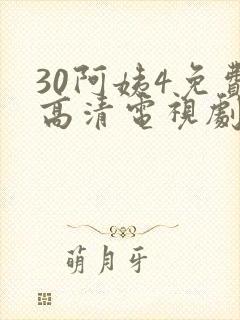 30阿姨4免費
高清電視劇
萌月牙